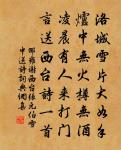 洛城雪片大如手
爐中無火樽無酒
凌晨有人來打門
言送西台詩一首
邵雍謝西台張元伯雪
中送詩